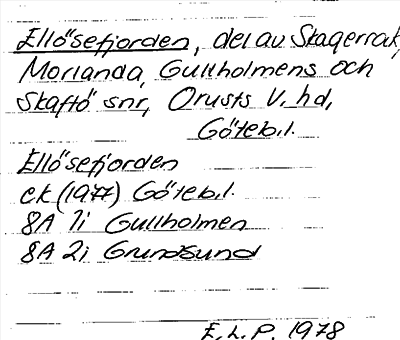 Ellösefjorden, del av Skagerrak,
Morlanda, Gullholmens och
Skaftö snr, Orusts V. hd,
Göteb.l.
Ellösefjorden
ek (1977) Göteb.l.
8A 1i Gullholmen
8A 2i Grundsund
E.L.P. 1978